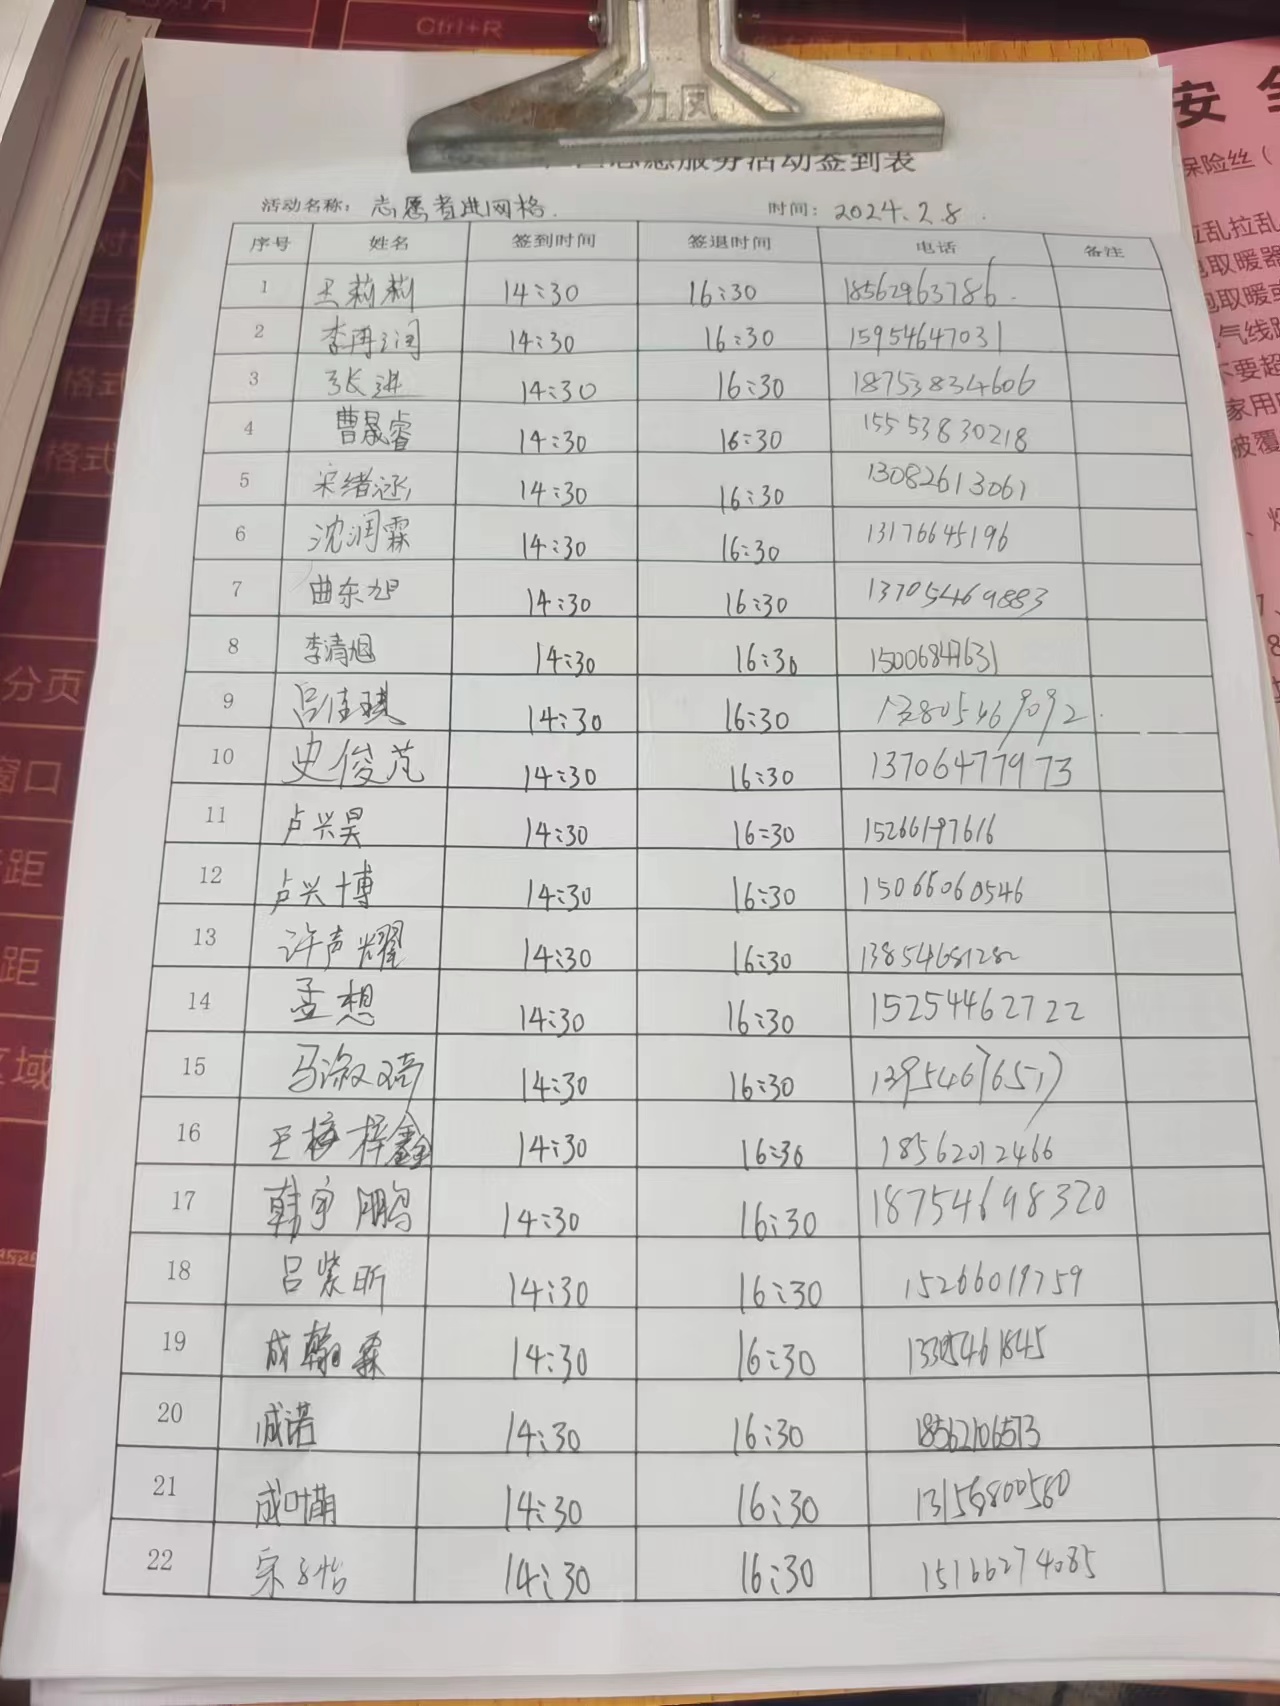 Ctrl+R
力风
志愿服务活动签到表
安全
保险丝（
活动名称：志愿者进网格. 时间：2024.2.8.
序号 姓名 签到时间 签退时间 电话 备注
1 王莉莉 14:30 16:30 18562963786.
2 李再润 14:30 16:30 15954647031
3 张进 14:30 16:30 18753834606
4 曹晟睿 14:30 16:30 15553830218
5 宋绪涵 14:30 16:30 13082613061
6 沈润霖 14:30 16:30 13176645196
7 曲东旭 14:30 16:30 13705469883
8 李清旭 14:30 16:30 15006847631
9 吕佳琪 14:30 16:30 13805469092.
10 史俊范 14:30 16:30 13706477973
11 卢兴昊 14:30 16:30 15266197616
12 卢兴博 14:30 16:30 15066060546
13 许声耀 14:30 16:30 13854681282
14 孟想 14:30 16:30 15254462722
15 马淑琦 14:30 16:30
16 王梓鑫 14:30 16:30 18562012466
17 韩宇鹏 14:30 16:30 18754698320
18 吕紫昕 14:30 16:30 15266019759
19 成翰霖 14:30 16:30
20 成诺 14:30 16:30 18562106573
21 成叶萌 14:30 16:30
22 宗子怡 14:30 16:30 15166274085
拉乱拉乱
电取暖器
气线路
不要超
家用
被覆
格式
格式
分页
窗口
距
距
区域